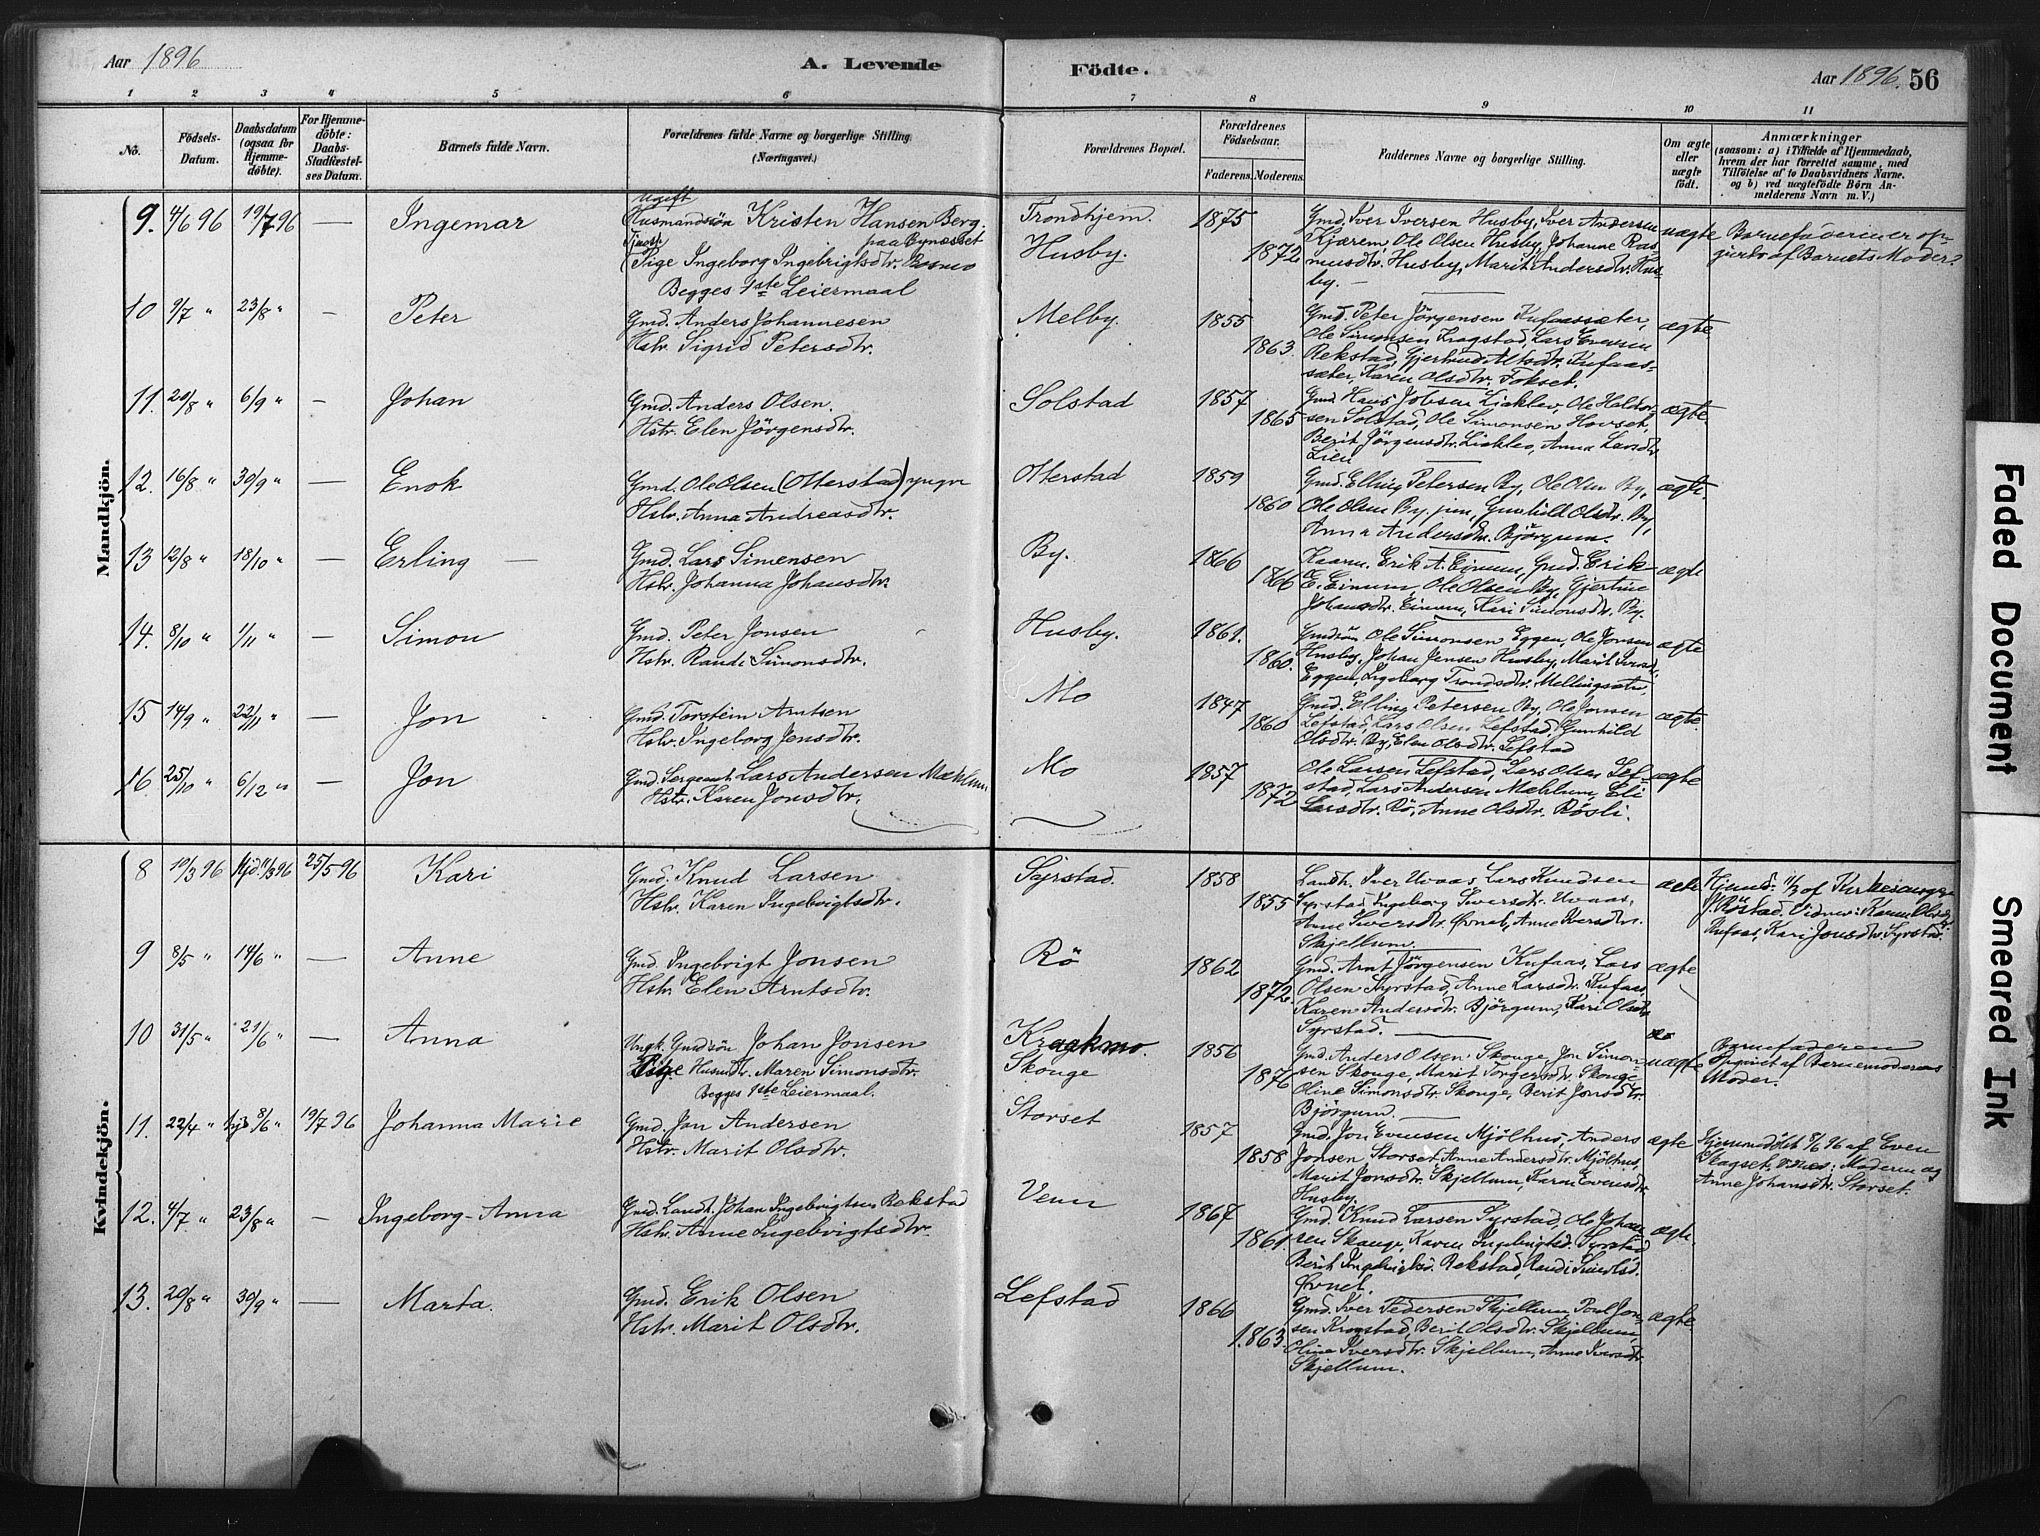 Aar 1896
A. Levende
Födte.
Aar 1896.
56
1 2 3 4 5 6 7 8 9 10 11
No.
Födsels-
Datum.
Daabsdatum
(ogsaa for
Hjemme-
døbte).
For Hjemme-
döbte:
Daabs-
Stadfæstel-
ses Datum.
Barnets fulde Navn.
Forældrenes fulde Navne og borgerlige Stilling.
(Næringsvei.)
Forældrenes Bopæl.
Forældrenes
Födselsaar.
Faderens. Moderens.
Faddernes Navne og borgerlige Stilling.
Om ægte
eller
uægte
født.
Anmærkninger
(saasom: a) i Tilfælde af Hjemmedaab,
hvem der har forrettet samme, med
Tilföielse af to Daabsvidners Navne.
og b) ved uægtefödte Börn An-
melderens Navn m. V.)
Mandkjön.
9. 4/6 96 19/7 96 — Ingemar
Ugift
Husmandssön Kristen Hansen Berg.
paa Bynesset
Tjenest.
Pige Ingeborg Ingebrigtsdtr.
Begges 1ste Leiermaal
Trondhjem.
Husby.
1875
1872
Gmd. Iver Iversen Husby, Iver Andersen
Kjærem, Ole Olsen Husby, Johanne Ras-
musdtr. Husby, Marit Andersdtr. Hus-
by. —
uægte
Barnefaderen er op-
givet af Barnets Moder.
10 9/7 " 23/8 " — Peter
Gmd. Anders Johannesen
Hstr. Sigrid Petersdtr.
Melby.
1855
1863.
Gmd. Peter Jörgensen Kufaassæter,
Ole Simonsen Krogstad, Lars Evensen
Rekstad, Gjertrud Kufaas-
sæter, Karen Olsdtr. Fokset.
ægte.
11. 20/8 " 6/9 " — Johan
Gmd. Anders Olsen.
Hstr. Elen Jörgensdtr.
Solstad
1857
1865
Gmd Hans Liaklev, Ole Haldor-
sen Solstad, Ole Simonsen Hovset,
Berit Jörgensdtr. Liaklev, Anna Larsdtr.
Lien
ægte.
12. 16/8 " 30/9 " — Enok
Gmd. Ole Olsen (Otterstad) yngre
Hstr. Anna Andreasdtr.
Otterstad
1859
1860
Gmd. Elling Petersen By, Ole Olsen By,
Ole Olsen By, jun, Gunhild Olsdtr. By,
Anna Andersdtr. Björgum.
ægte
13 12/8 " 18/10 " — Erling —
Gmd. Lars Simensen
Hstr. Johanna Johansdtr.
By.
1866
1866
Kaarm. Erik A. Einum, Gmd. Erik
E. Einum, Ole Olsen By, Gjertine
Johansdtr. Einum, Kari Simonsdtr. By.
ægte
14. 8/10 " 1/11 " — Simon
Gmd. Peter Jonsen
Hstr. Randi Simonsdtr.
Husby.
1861.
1860.
Gmdsön Ole Simonsen Eggen, Ole Jonsen
Husby, Johan Jensen Husby, Marit
Eggen, Ingeborg Trondsdtr. Mellingsæter
ægte
15 14/9 " 22/11 " — Jon
Gmd. Torstein Arntsen
Hstr. Ingeborg Jensdtr.
Mo
1847
1860
Gmd. Elling Petersen By, Ole Jonsen
Lefstad, Lars Olsen Lefstad, Gunhild
Olsdtr. By, Elen Olsdtr. Lefstad
ægte.
16. 25/10 " 6/12 " — Jon
Gmd. Sergeant Lars Andersen Mæhlum
Hstr. Karen Jonsdtr.
Mo
1857
1872
Ole Larsen Lefstad, Lars Olsen Lef-
stad, Lars Andersen Mæhlum, Eli
Larsdtr. Rö, Anne Olsdtr. Rösli.
ægte
Kvindekjön.
8 10/3 96 Hjd 11/3 96 25/5 96 Kari
Gmd. Knud Larsen
Hstr. Karen Ingebrigtsdtr.
Syrstad.
1858
1855
Landh. Iver Uvaas, Lars Knudsen
Syrstad, Ingeborg Iversdtr. Uvaas,
Anne Iversdtr. Övnet, Anne Iversdtr.
Skjellum.
ægte
Hjemd. 11/3 af Kirkesanger
J. Röstad. Vidner: Karen Olsdtr
Kufaas, Kari Jonsdtr. Syrstad.
9 8/5 " 14/6 " — Anne
Gmd. Ingebrigt Jonsen
Hstr. Elen Arntsdtr.
Rö
1862
1872.
Gmd. Arnt Jörgensen Kufaas, Lars
Olsen Syrstad, Anne Larsdtr. Kufaas,
Karen Andersdtr. Björgum, Kari Olsdtr.
Syrstad. —
ægte
10 31/5 " 21/6 " — Anna
Ungk. Gmdsön Johan Jonsen
Pige Husmdtr. Maren Simonsdtr.
Begges 1ste Leiermaal.
Kraakmo.
Skouge
1856
1876
Gmd. Anders Olsen Skouge, Jon Simon-
sen Skouge, Marit Torgersdtr. Skouge
Oline Simonsdtr. Skouge, Berit Jonsdtr.
Björgum.
uægte
Barnefaderen
opgivet af Barnemoderens
Moder.
11. 22/4 " hjd 8/6 " 19/7 96 Johanna Marie
Gmd. Jon Andersen
Hstr. Marit Olsdtr.
Storset
1857
1858
Gmd. Jon Evensen Mjölhus, Anders
Jonsen Storset, Anne Andersdtr. Mjölhus,
Marit Jonsdtr. Skjellum, Karen Evensdtr.
Husby.
ægte
Hjemmedöbt 8/6 96 af Even
Skagset, Vidner: Moderen og
Anne Johansdtr. Storset.
12. 4/7 " 23/8 " — Ingeborg-Anna
Gmd. Landh. Johan Ingebrigtsen Rekstad
Hstr. Anne Ingebrigtsdtr.
Venn
1867
1861.
Gmd. Knud Larsen Syrstad, Ole Johan-
sen Skauge, Karen Ingebrigtsd. Syrstad
Berit Ingebrigtsd. Rekstad, Randi
Övnet.
ægte.
13. 20/8 " 30/9 " — Marta.
Gmd. Erik Olsen
Hstr. Marit Olsdtr.
Lefstad
1866
1863.
Gmd. Iver Pedersen Skjellum, Poul Jon-
sen Krogstad, Berit Olsdtr. Skjellum,
Oline Iversdtr. Skjellum, Anne Iversdtr.
Skjellum.
ægte
Faded Document
Smeared Ink